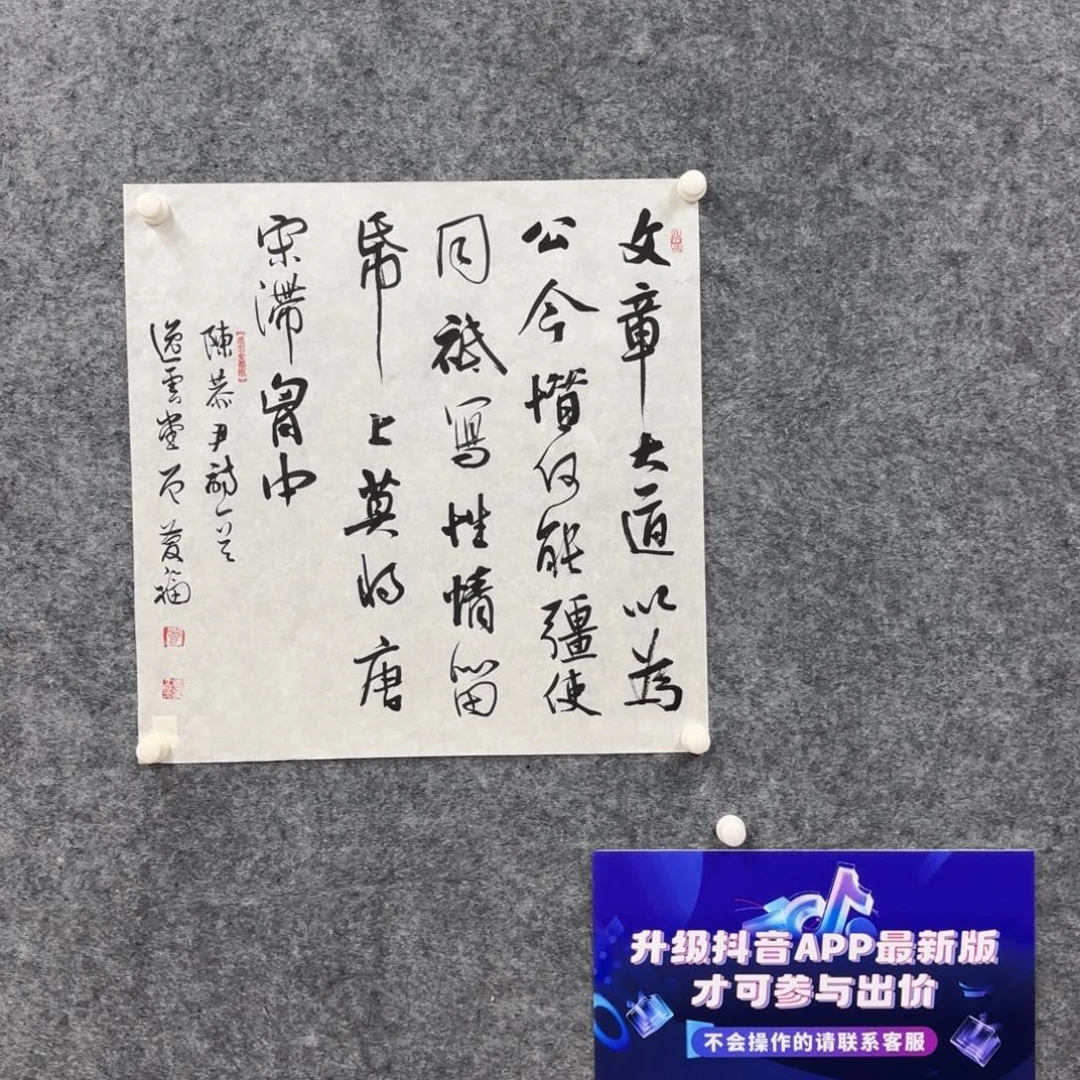 文章大道以為
公今惜何能彊使
同祇写性情留
帋上莫将唐
宋滞胷中
陳恭尹詩一首
逸雲堂
升级抖音APP最新版
才可参与出价
不会操作的请联系客服